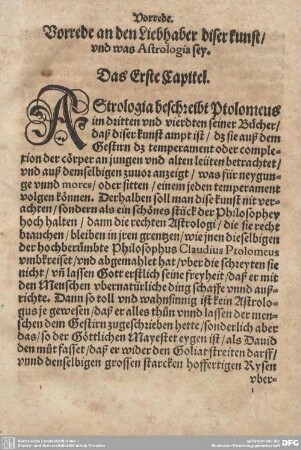 Vorrede.
Vorrede an den Liebhaber diser kunst/
vnd was Astrologia sey.
Das Erste Capitel.
AStrologia beschreibt Ptolomeus
im dritten vnd vierdten seiner Bücher/
daß diser kunst ampt ist / dz sie auß dem
Gestirn dz temperament oder comple-
xion der cörper an jungen vnd alten leüten betrachtet/
vnd auß demselbigen zuuor anzeigt / was für neygun-
ge vnnd mores/ oder sitten / einem jeden temperament
volgen können. Derhalben soll man dise kunst nit ver-
achten / sondern als ein schönes stück der Philosophey
hoch halten / dann die rechten Astrologi, die sie recht
brauchen / bleiben in jren grentzen / wie jnen dieselbigen
der hochberümbte Philosophus Claudius Ptolomeus
vmbkreiset / vnd abgemahlet hat / vber die schreyten sie
nicht / vñ lassen Gott erstlich seine freyheit / daß er mit
den Menschen vbernatürliche ding schaffe vnnd auß-
richte. Dann so toll vnd wahnsinnig ist kein Astrolo-
gus je gewesen / daß er alles thůn vnnd lassen der men-
schen dem Gestirn zugeschrieben hette / sonderlich aber
das / so der Göttlichen Mayestet eygen ist / als Dauid
den můt fasset / daß er wider den Goliat streiten darff /
vnnd denselbigen grossen starcken hoffertigen Rysen
vber-
DFG